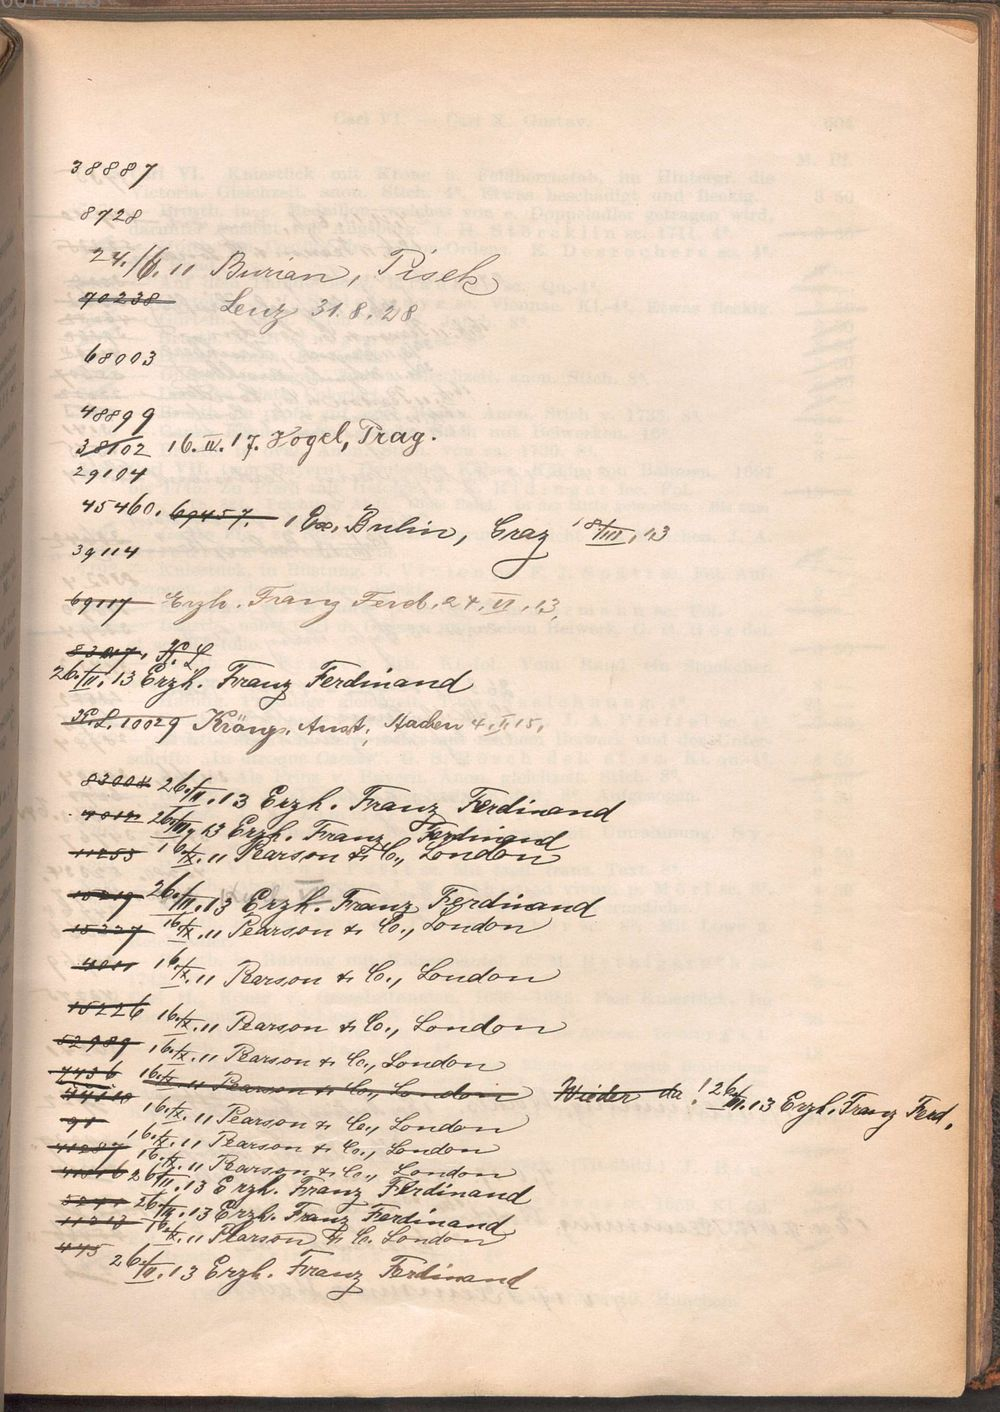 38887
8728
24./6. 11 Burian, Pisek
70238 Lenz 31.8.28
68003
48899
38102 16.IV.17. Vogel, Prag.
29104
45460. 69457. Bulin, Graz 18/III.13
39114
69117 Erzh. Franz Ferd. 24.VI.13.
K. L.
26./II.13 Erzh. Franz Ferdinand
K.L. 10029 Aachen 4.II.15.
83008 26./II.13 Erzh. Franz Ferdinand
26./II.13 Erzh. Franz Ferdinand
11253 16./IX.11 Pearson & Co., London
15219 26./II.13 Erzh. Franz Ferdinand
15227 16./IX.11 Pearson & Co., London
16./IX.11 Pearson & Co., London
15226 16./IX.11 Pearson & Co., London
52989 16./IX.11 Pearson & Co., London
7436 16./IX.11 Pearson & Co., London Wieder da! 26./II.13 Erzh. Franz Ferd.
16./IX.11 Pearson & Co., London
16./IX.11 Pearson & Co., London
16./IX.11 Pearson & Co., London
26./II.13 Erzh. Franz Ferdinand
26./II.13 Erzh. Franz Ferdinand
11213 16./IX.11 Pearson & Co. London
445 26./II.13 Erzh. Franz Ferdinand